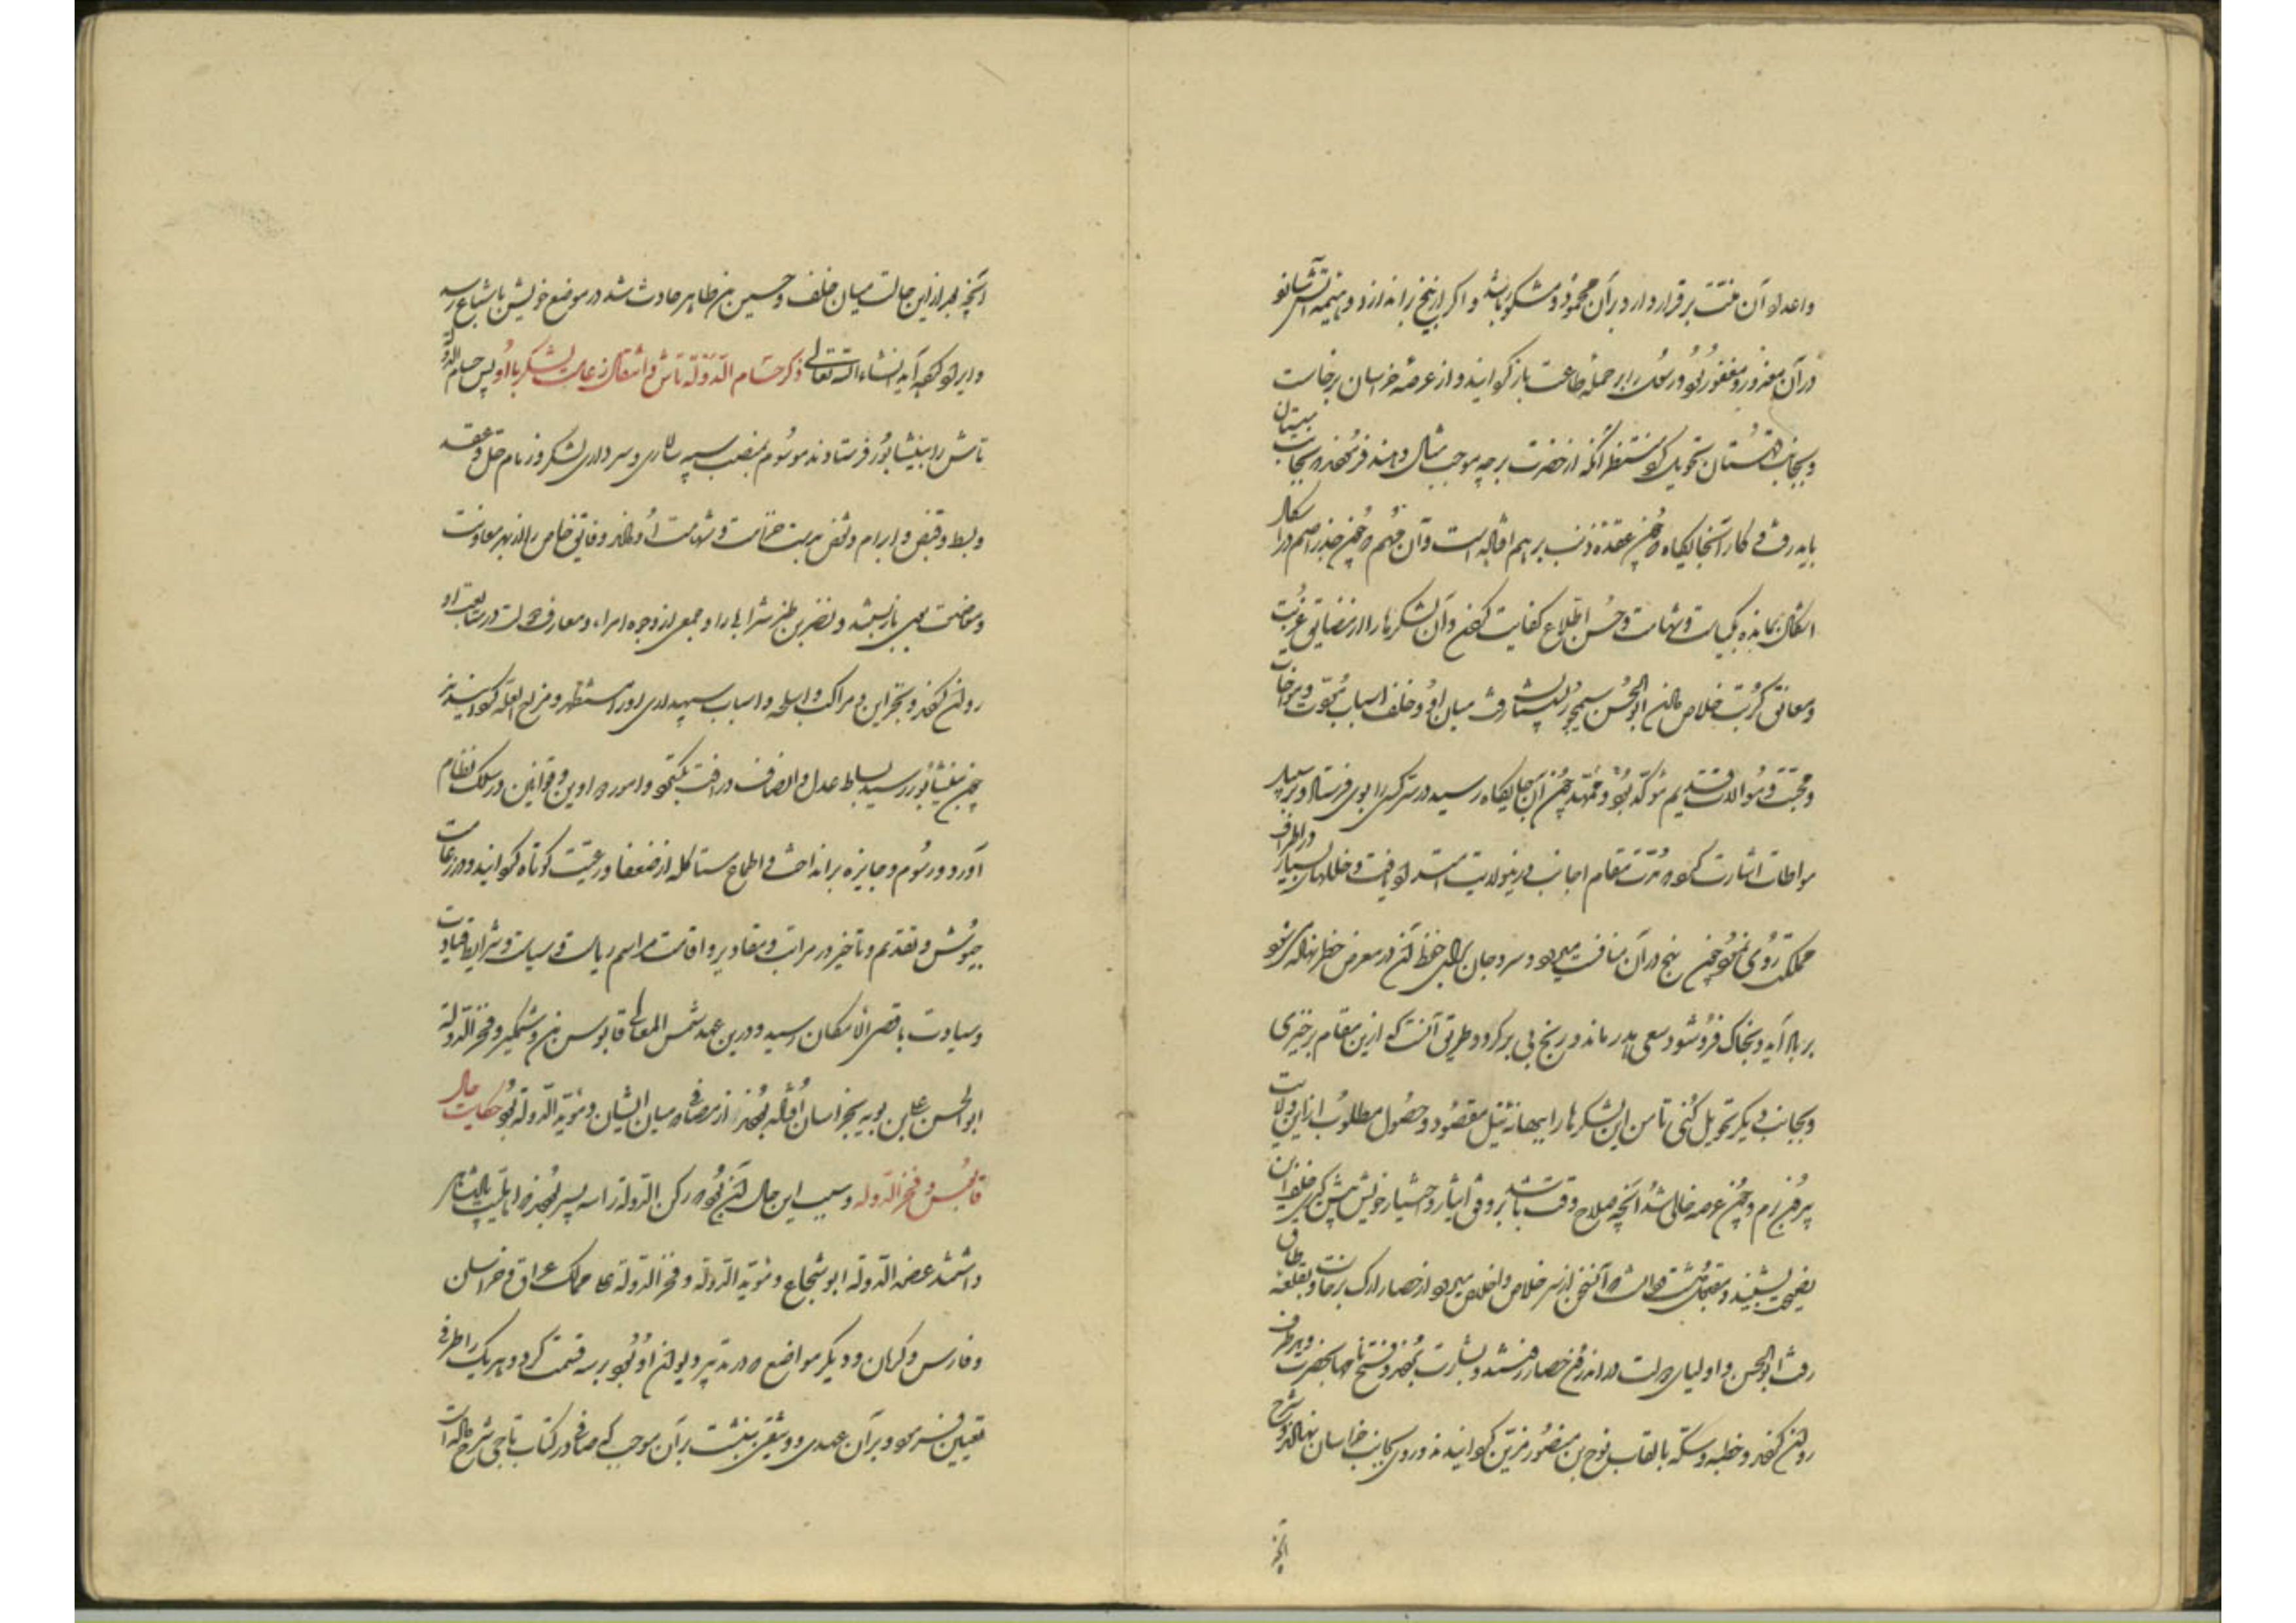 واعداد آن منت برقرار دارد بر آن محمود و مشکور باشد و اگر از بیخ براندازد و ضمیمه آتش شانو
در آن معذور و مغفور بود و رسول را بر جمله طاعت باز گردانید و از عرصه خراسان برخاست
و بجانب قهستان تحویل کرد منتظر آنکه از حضرت بر چه موجب مثال دهند فرمودند بجانب سیستان
باید رفت و کار آنجایگاه که چون عقده ذنب بر هم افتاده است و آن مهم که چون جذر اصم در اشکال
اشکال بمانده بکیاست و شهامت و حسن اطلاع کفایت کردن و آن لشکرها را از مضایق غربت
و معانق کربت خلاص دادن ابوالحسن سیمجور را پیشتر میان او و خلف اسباب نبوت و مواخات
و محبت و موالات قدیم مؤکد بود و ممهد چون آن جایگاه رسید در سر کس را بوی فرستاد و بر سبیل
مواطات اشارت کرد که مدت مقام اجانب در این ولایت امتداد یافت و خللهای بسیار در اطراف
مملکت روی نمود چون رنج در آن منافست میبرد و سر و جان برای حفظ آن در معرض خطر نهاده شود
بر باد آید و بخاک فرو شود و سعی هدر ماند و رنج بی بر گردد و طریق آنست که ازین مقام برخیزی
و بجانب دیگر تحویل کنی تا من این لشکرها را ببهانه نیل مقصود و حصول مطلوب از این ولایت
بیرون برم و چون عرصه خالی شد آنچه صلاح وقت باشد بر وفق ایثار و اختیار خویش پیش گیری خلف آن
نصیحت بشنید و متقبل منت داشت که آن سخن از سر خلاص و اخلاص میبرد از حصار ارک برخاست و بقلعه طاق
رفت ابوالحسن و اولیای دولت در اندرون حصار رفتند و بشارت بردند و فتح نامها بحضرت و هر طرف
روان کردند و خطبه و سکه بالقاب نوح بن منصور مزین گردانیدند و روی بجانب خراسان نهادند و شرح
آنچه
آنچه بعد از این حالت میان خلف و حسین بن طاهر حادث شد در موضع خویش باشباع رسد
و ایراد کرده آید انشاء الله تعالی ذکر حسام الدوله تاش و انتقال زعامت لشکر با او پس حسام الدوله
تاش را بنیشابور فرستادند موسوم بمنصب سپه سالاری و سرداری لشکر و زمام حل و عقد
و بسط و قبض و ابرام و نقض بدست حمایت و شهامت او دادند و فایق خاص را از بهر معاونت
و معاضدت وی بازنشستند و نصر بن طغر شرابی را و جمعی از وجوه امراء و معارف دولت در متابعت او
روان کردند و بخزاین و مراکب و اسلحه و اسباب سپهداری او را مستظهر و مزاح العله گردانیدند
چون بنیشابور رسید بساط عدل و انصاف و رافت بگسترد و امور دواوین و قوانین در سلک نظام
آورد و رسوم و جایزه برانداخت و اطماع مستاکله از ضعفا و رعیت کوتاه گردانید و در زعامت
جیوش و تقدیم و تاخیر در مراتب و مقادیر و اقامت مراسم ریاست و سیاست و شرایط قیادت
و سیادت باقصی الامکان رسید و درین عهد شمس المعالی قابوس بن وشمگیر و فخر الدوله
ابوالحسن علی بن بویه بخراسان افتاده بودند از مصافی که میان ایشان و مؤید الدوله بود حکایت حال
قابوس و فخر الدوله و سبب این حال آن بود که رکن الدوله را سه پسر بودند که اهلیت پادشاهی
داشتند عضد الدوله ابو شجاع و مؤید الدوله و فخر الدوله علی ممالک عراق و خراسان
و فارس و کرمان و دیگر مواضع که در تدبیر و دیوان او بود بر سه قسمت کرد و هر یک را طرفی
تعیین فرمود و بر آن عهدی و وثیقتی بنبشت بر آن موجب که صابی در کتاب تاجی شرح داده است